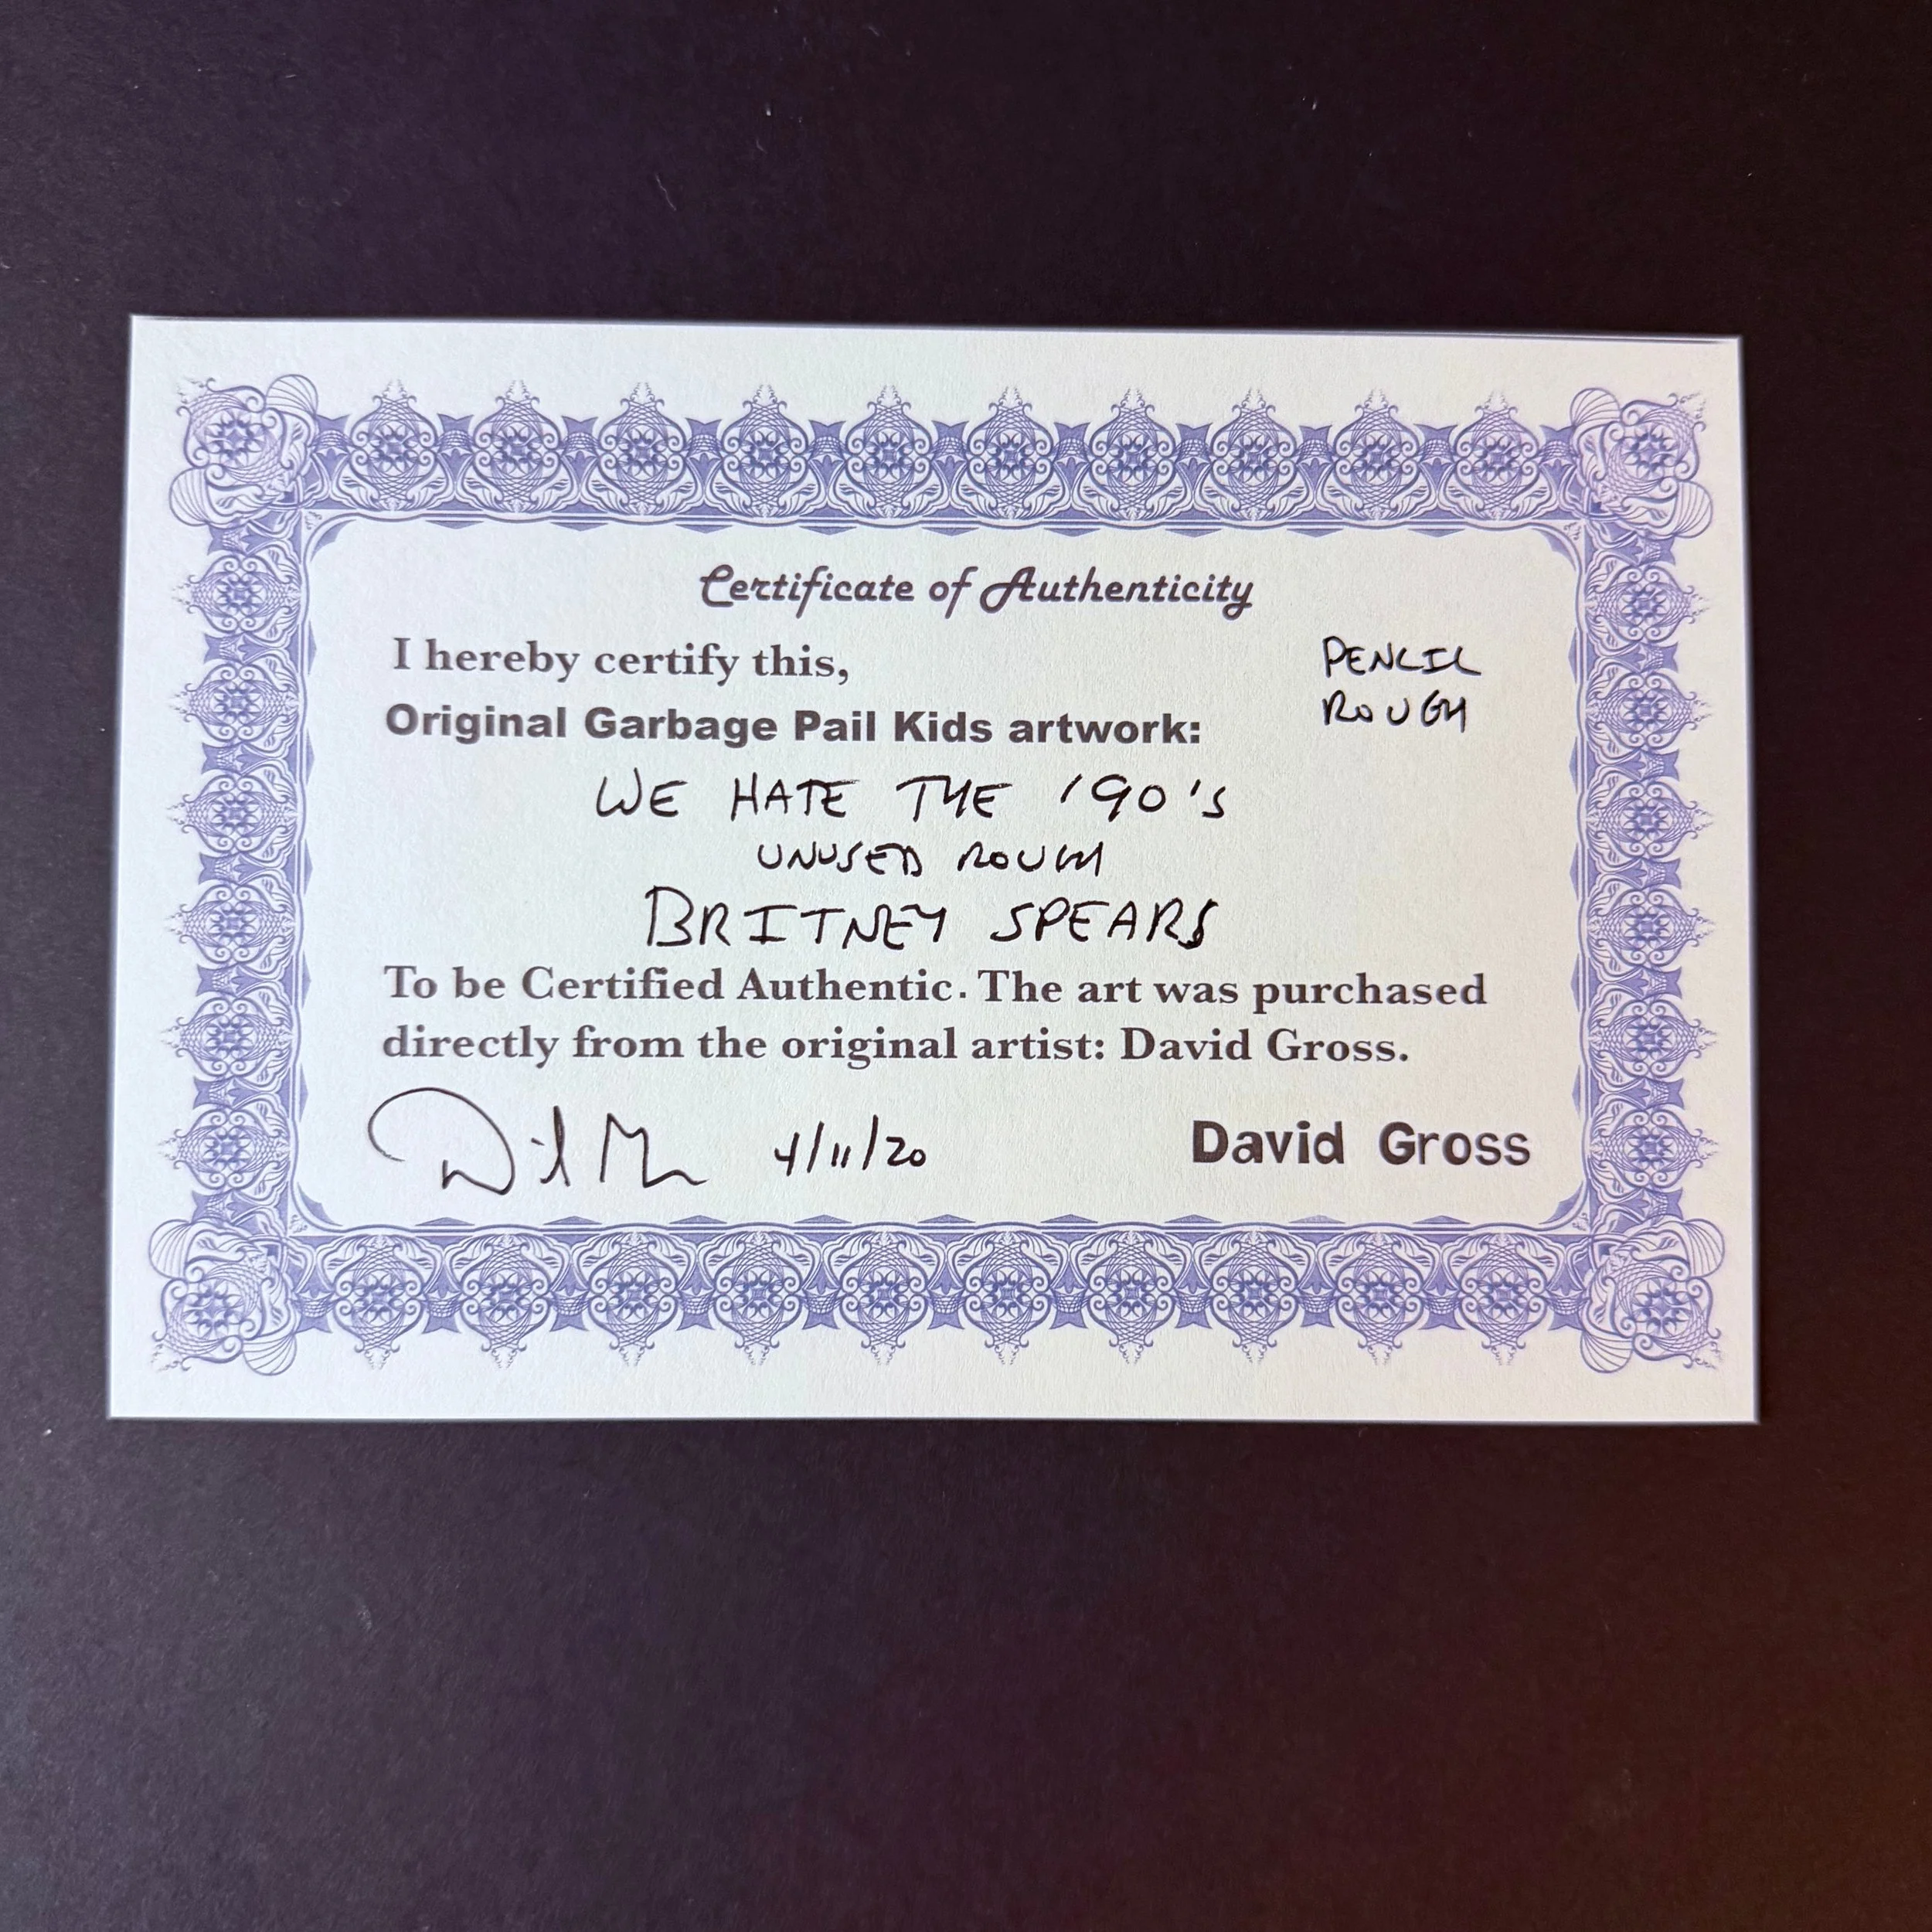 Certificate of Authenticity
I hereby certify this,
PENCIL
ROUGH
Original Garbage Pail Kids artwork:
WE HATE THE '90's
UNUSED ROUGH
BRITNEY SPEARS
To be Certified Authentic. The art was purchased
directly from the original artist: David Gross.
4/11/20
David Gross